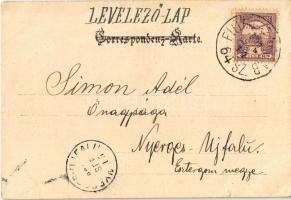 LEVELEZŐ-LAP
Correspondenz-Karte.
Simon Adél
Önagysága
Nyerges-Ujfalu.
Esztergom megye.